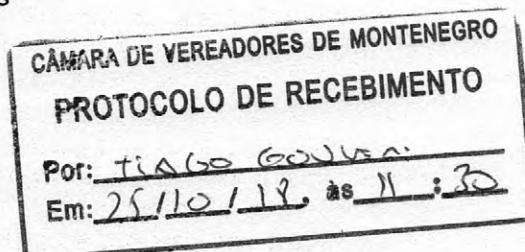 CÂMARA DE VEREADORES DE MONTENEGRO
PROTOCOLO DE RECEBIMENTO
Por: TIAGO
Em: 25/10/18, às 11:30